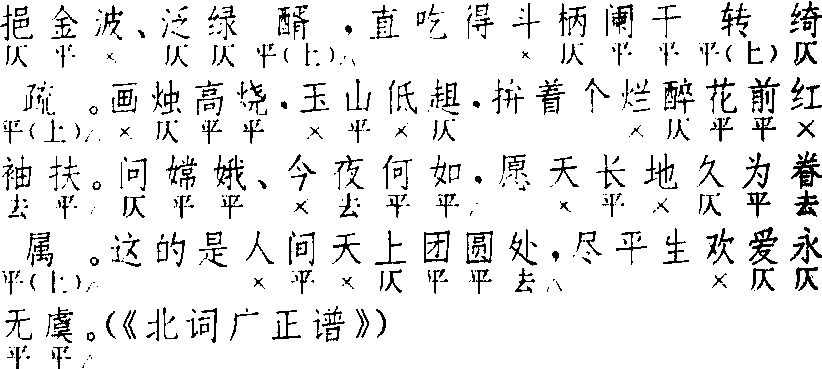 挹金波、泛绿醑，直吃得斗柄阑干转绮
仄平×仄仄平(上)△×仄平平平(上)仄
疏。画烛高烧，玉山低趄，拚着个烂醉花前红
平(上)△×仄平平×平×仄×仄平平×
袖扶。问嫦娥、今夜何如，愿天长地久为眷
去平△仄平平×去平平△×平×仄平去
属。这的是人间天上团圆处，尽平生欢爱永
平(上)△×平×仄平平去△×仄仄
无虞。(《北词广正谱》)
平平△